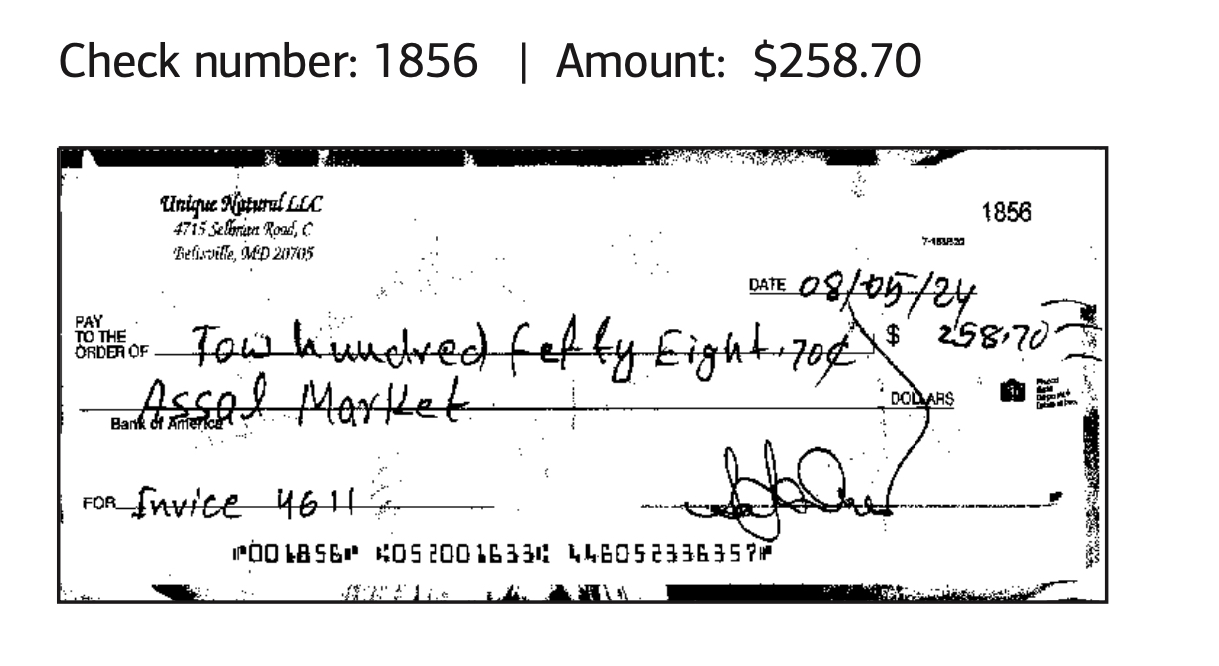 Check number: 1856 | Amount: $258.70
Unique Natural LLC
1856
4715 Sellman Road, C
Beltsville, MD 20705
DATE 08/05/24
PAY
TO THE
ORDER OF Tow hundred fefty Eight .70¢ $ 258.70
Assal Market DOLLARS
Bank of America
FOR Invice 4611
001856 052001633 446052336357